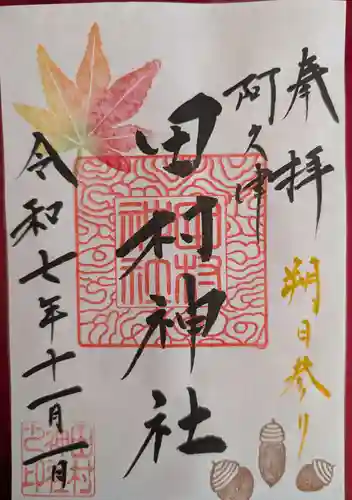 奉拝
朔日参り
阿久津
田村神社
令和七年十一月一日
田村神社
田村神社之印